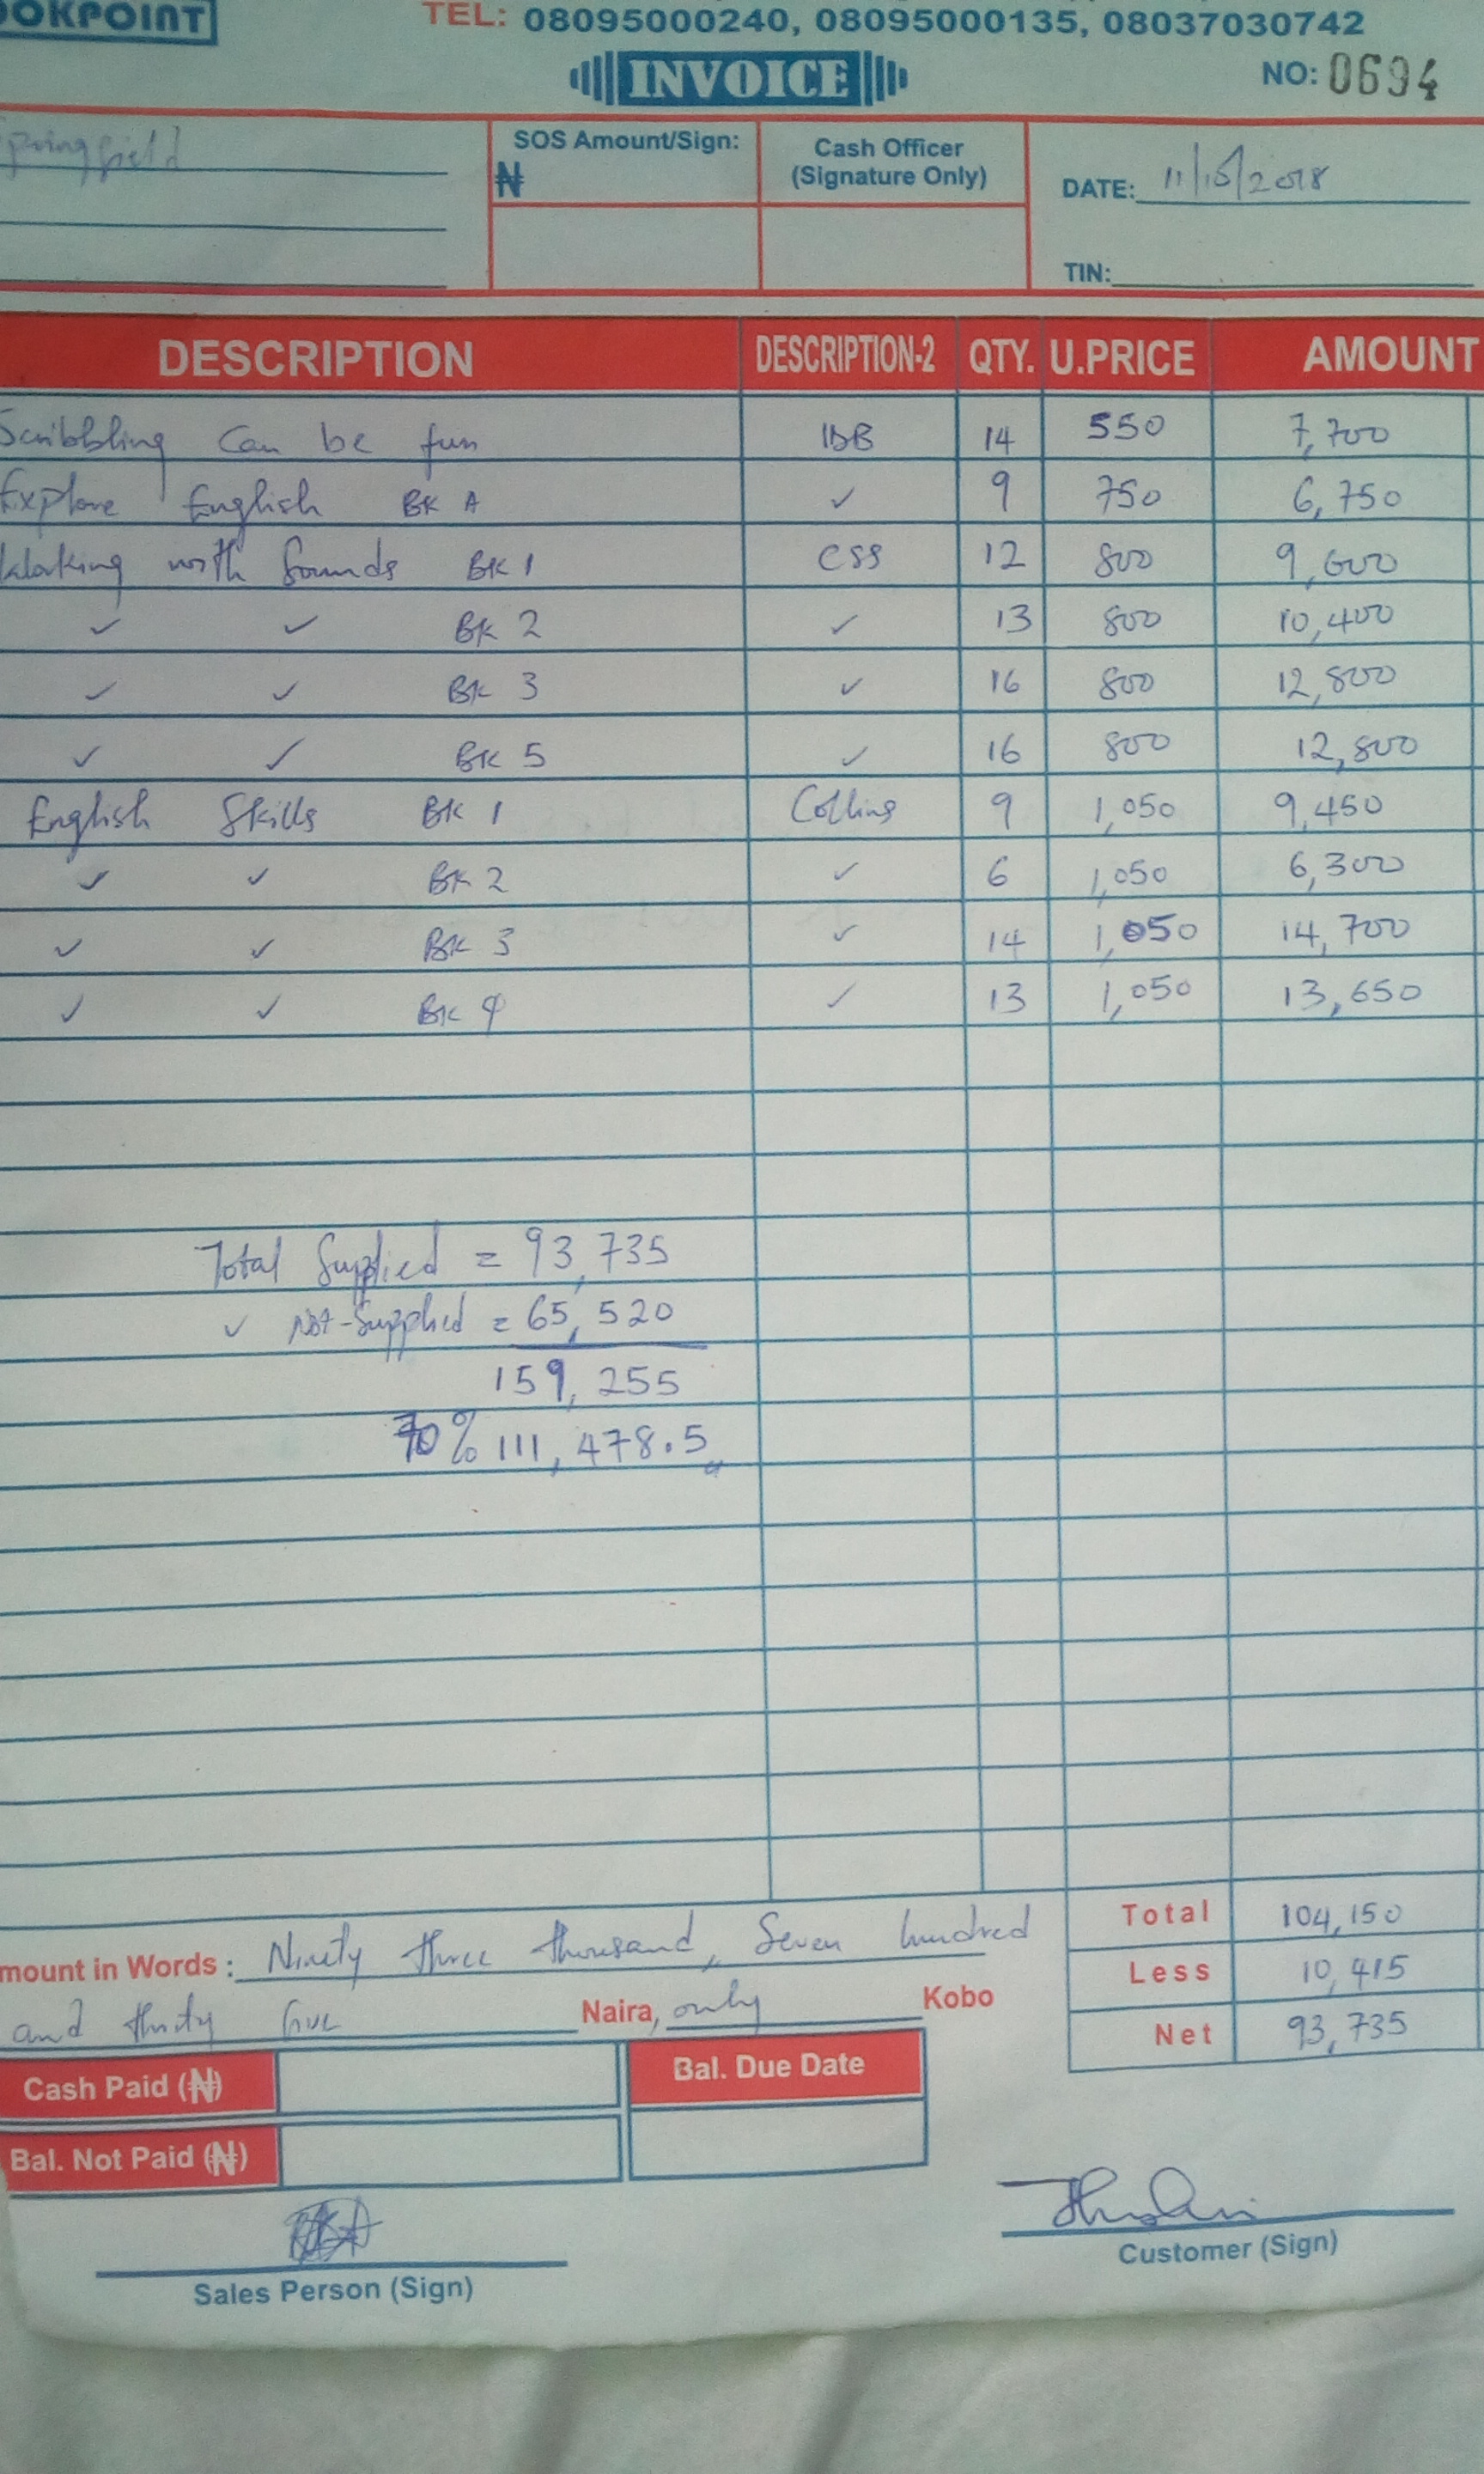 OKPOINT TEL: 08095000240, 08095000135, 08037030742
INVOICE NO: 0694
pringfield SOS Amount/Sign: Cash Officer
₦ (Signature Only) DATE: 11/10/2018
TIN:
DESCRIPTION DESCRIPTION-2 QTY. U.PRICE AMOUNT
Scribbling Can be fun 14 550 7,700
Explore English BK A ✓ 9 750 6,750
with Sounds BK 1 CSS 12 800 9,600
✓ ✓ BK 2 ✓ 13 800 10,400
✓ ✓ BK 3 ✓ 16 800 12,800
✓ ✓ BK 5 ✓ 16 800 12,800
English Skills BK 1 Collins 9 1,050 9,450
✓ ✓ BK 2 ✓ 6 1,050 6,300
✓ ✓ BK 3 ✓ 14 1,050 14,700
✓ ✓ BK 4 ✓ 13 1,050 13,650
Total Supplied = 93,735
✓ Not-Supplied = 65,520
159,255
70% 111,478.5
Total 104,150
mount in Words: Ninety three thousand, Seven hundred
Less 10,415
and thirty five Naira, only Kobo
Net 93,735
Cash Paid (₦) Bal. Due Date
Bal. Not Paid (₦)
Sales Person (Sign) Customer (Sign)